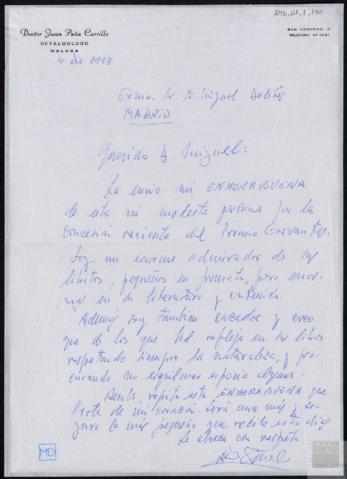 AMD,41,1,190
Doctor Juan Peña Carrillo
OFTALMOLOGO
MALAGA
SAN LORENZO, 2
TELEFONO
4 Dic 1993
Excmo. Sr. D. Miguel Delibes
MADRID
Querido D. Miguel:
Le envio mi ENHORABUENA
de esta mi modesta persona por la
concesión reciente del Premio Cervantes.
Soy un enorme admirador de sus
libritos, pequeños en formato, pero enor-
mes en su literatura y
Además soy tambien cazador y creo
que de los que Ud. refleja en sus libros
respetando siempre la naturaleza, y pro-
curando no esquilmar especie alguna.
repito esta ENHORABUENA que
brote de mi corazón. Será una más y se-
guro la más pequeña que recibe estos dias
Le abraza con respeto
MD